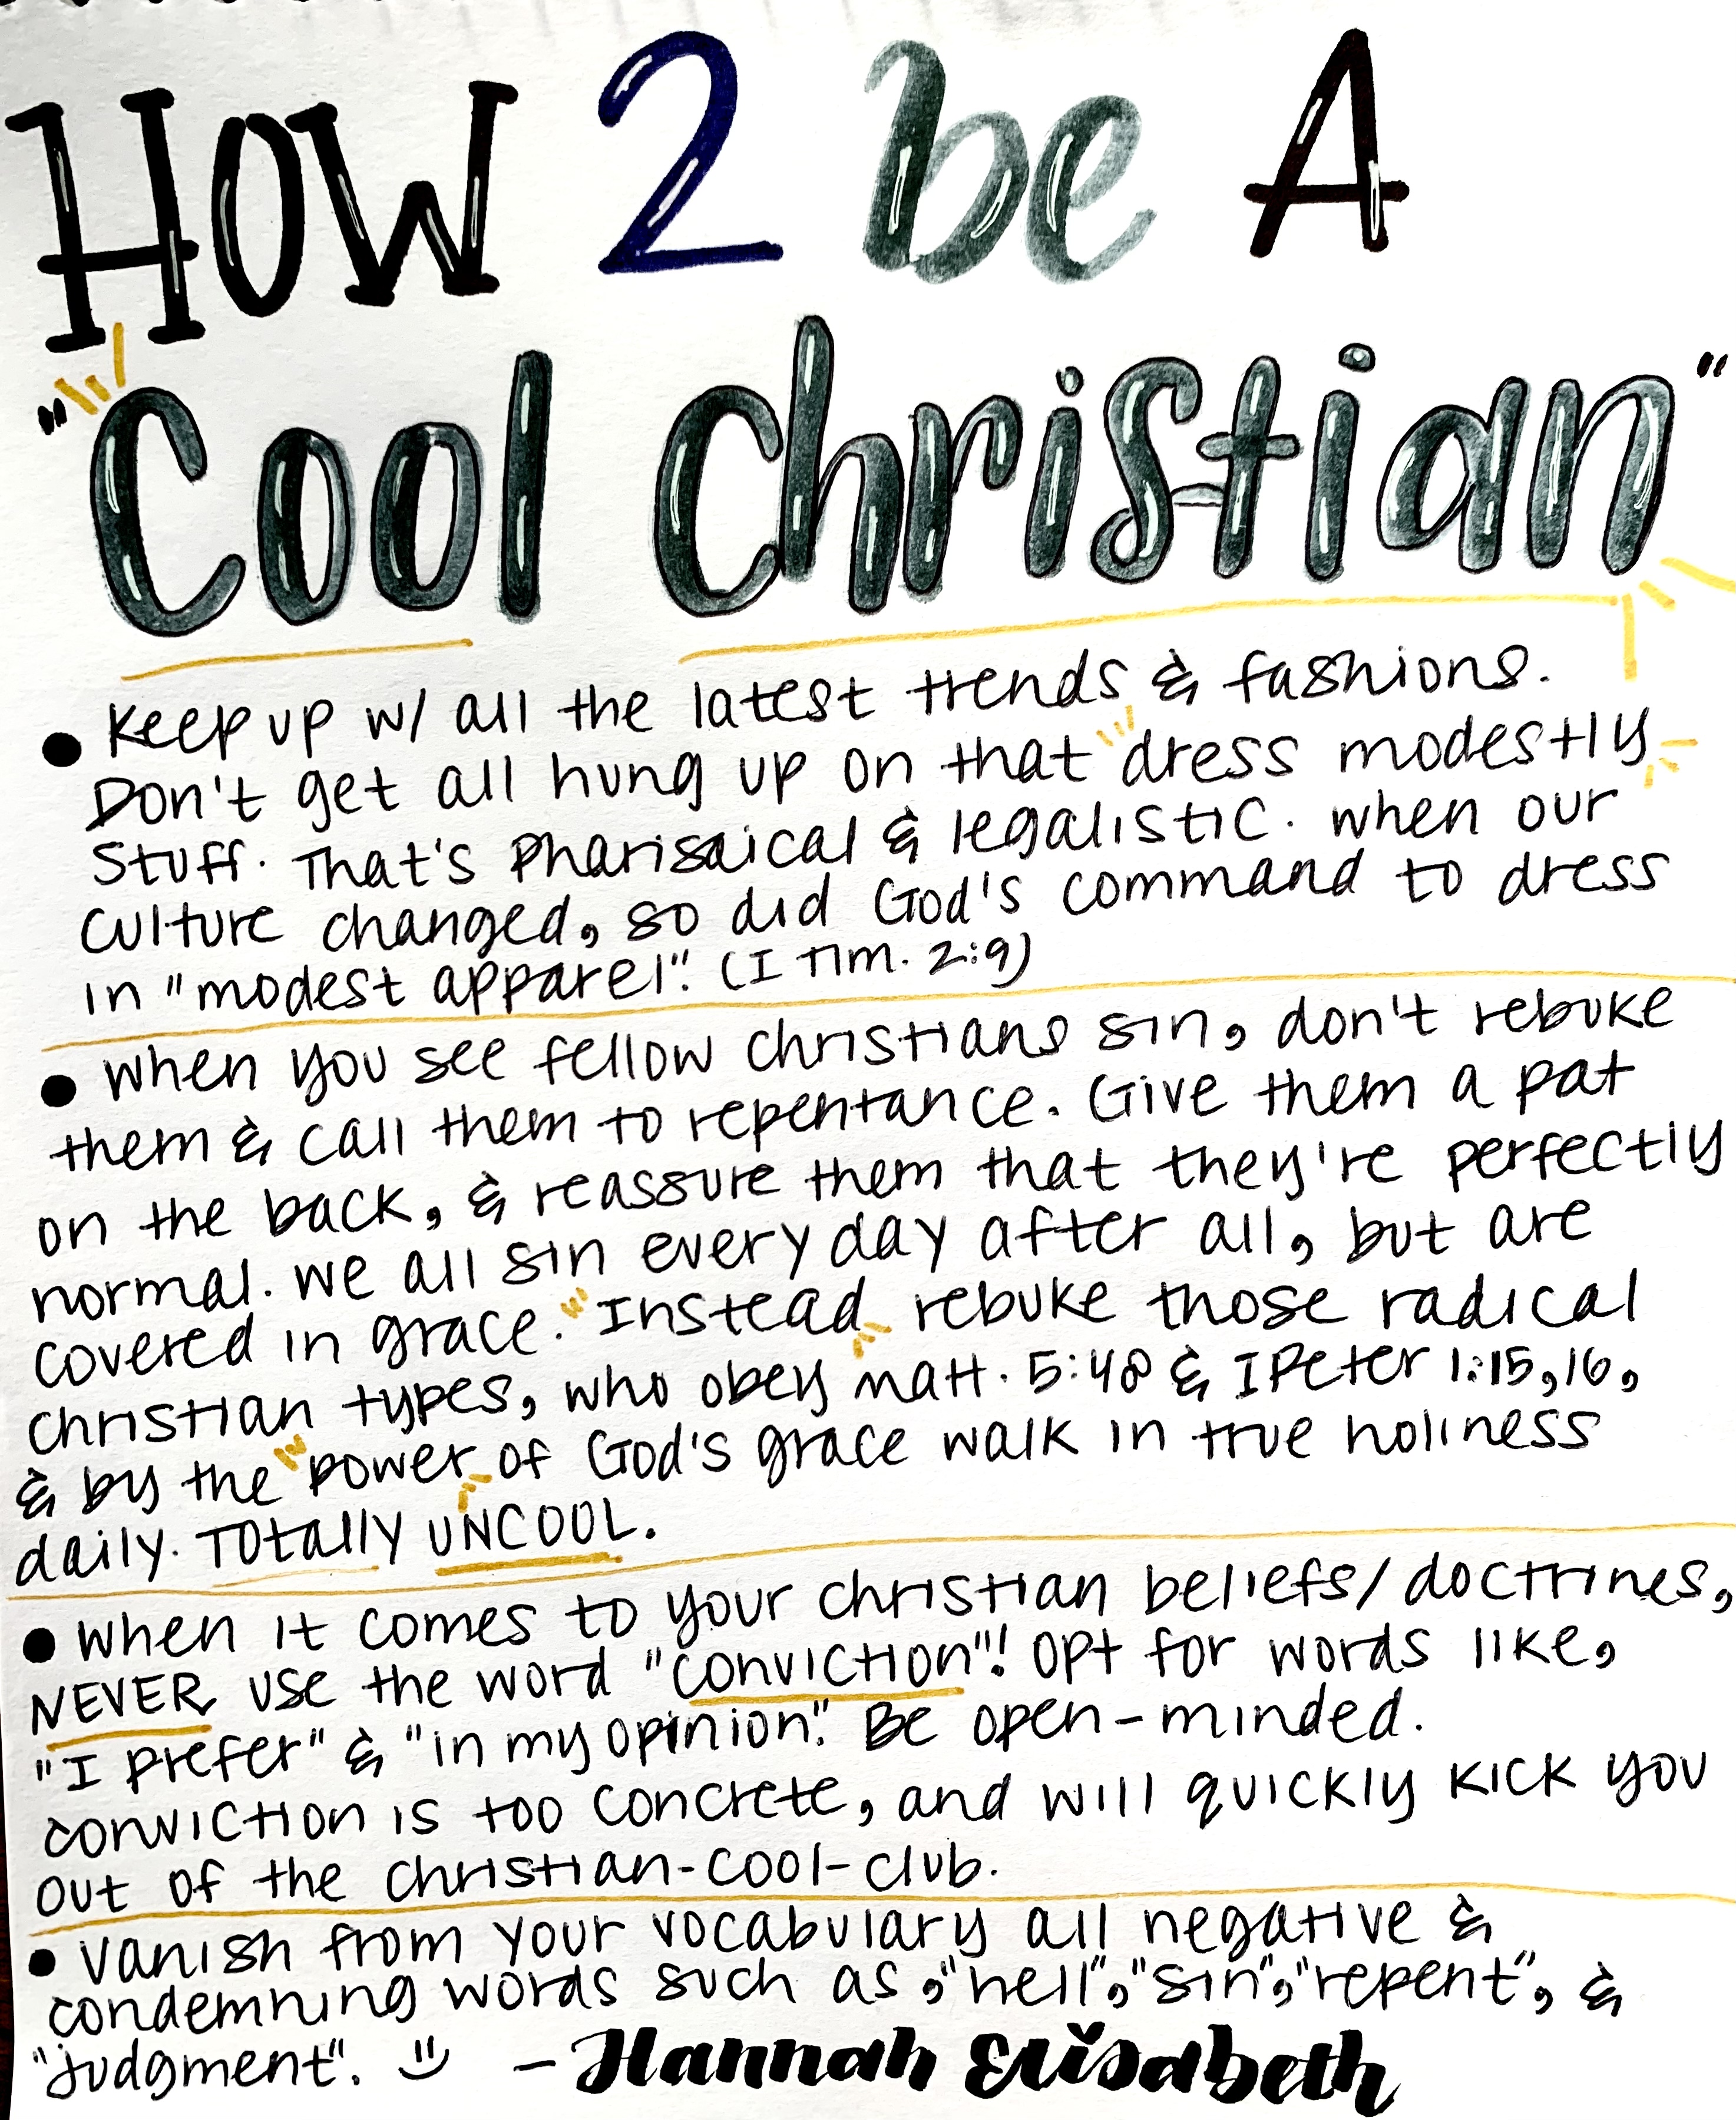 HOW 2 be A
"Cool Christian"
• Keep up w/ all the latest trends & fashions.
Don't get all hung up on that dress modestly
stuff. That's Pharisaical & legalistic. When our
culture changed, so did God's command to dress
in "modest apparel". (I Tim. 2:9)
• When you see fellow Christians sin, don't rebuke
them & call them to repentance. Give them a pat
on the back, & reassure them that they're perfectly
normal. We all sin every day after all, but are
covered in grace. Instead rebuke those radical
Christian types, who obey Matt. 5:48 & I Peter 1:15,16,
& by the power of God's grace walk in true holiness
daily. Totally UNCOOL.
• When it comes to your Christian beliefs/doctrines,
NEVER use the word "conviction"! Opt for words like,
"I prefer" & "in my opinion". Be open-minded.
Conviction is too concrete, and will quickly kick you
out of the Christian-cool-club.
• Vanish from your vocabulary all negative &
condemning words such as, "hell", "sin", "repent", &
"judgment". — Hannah Elisabeth